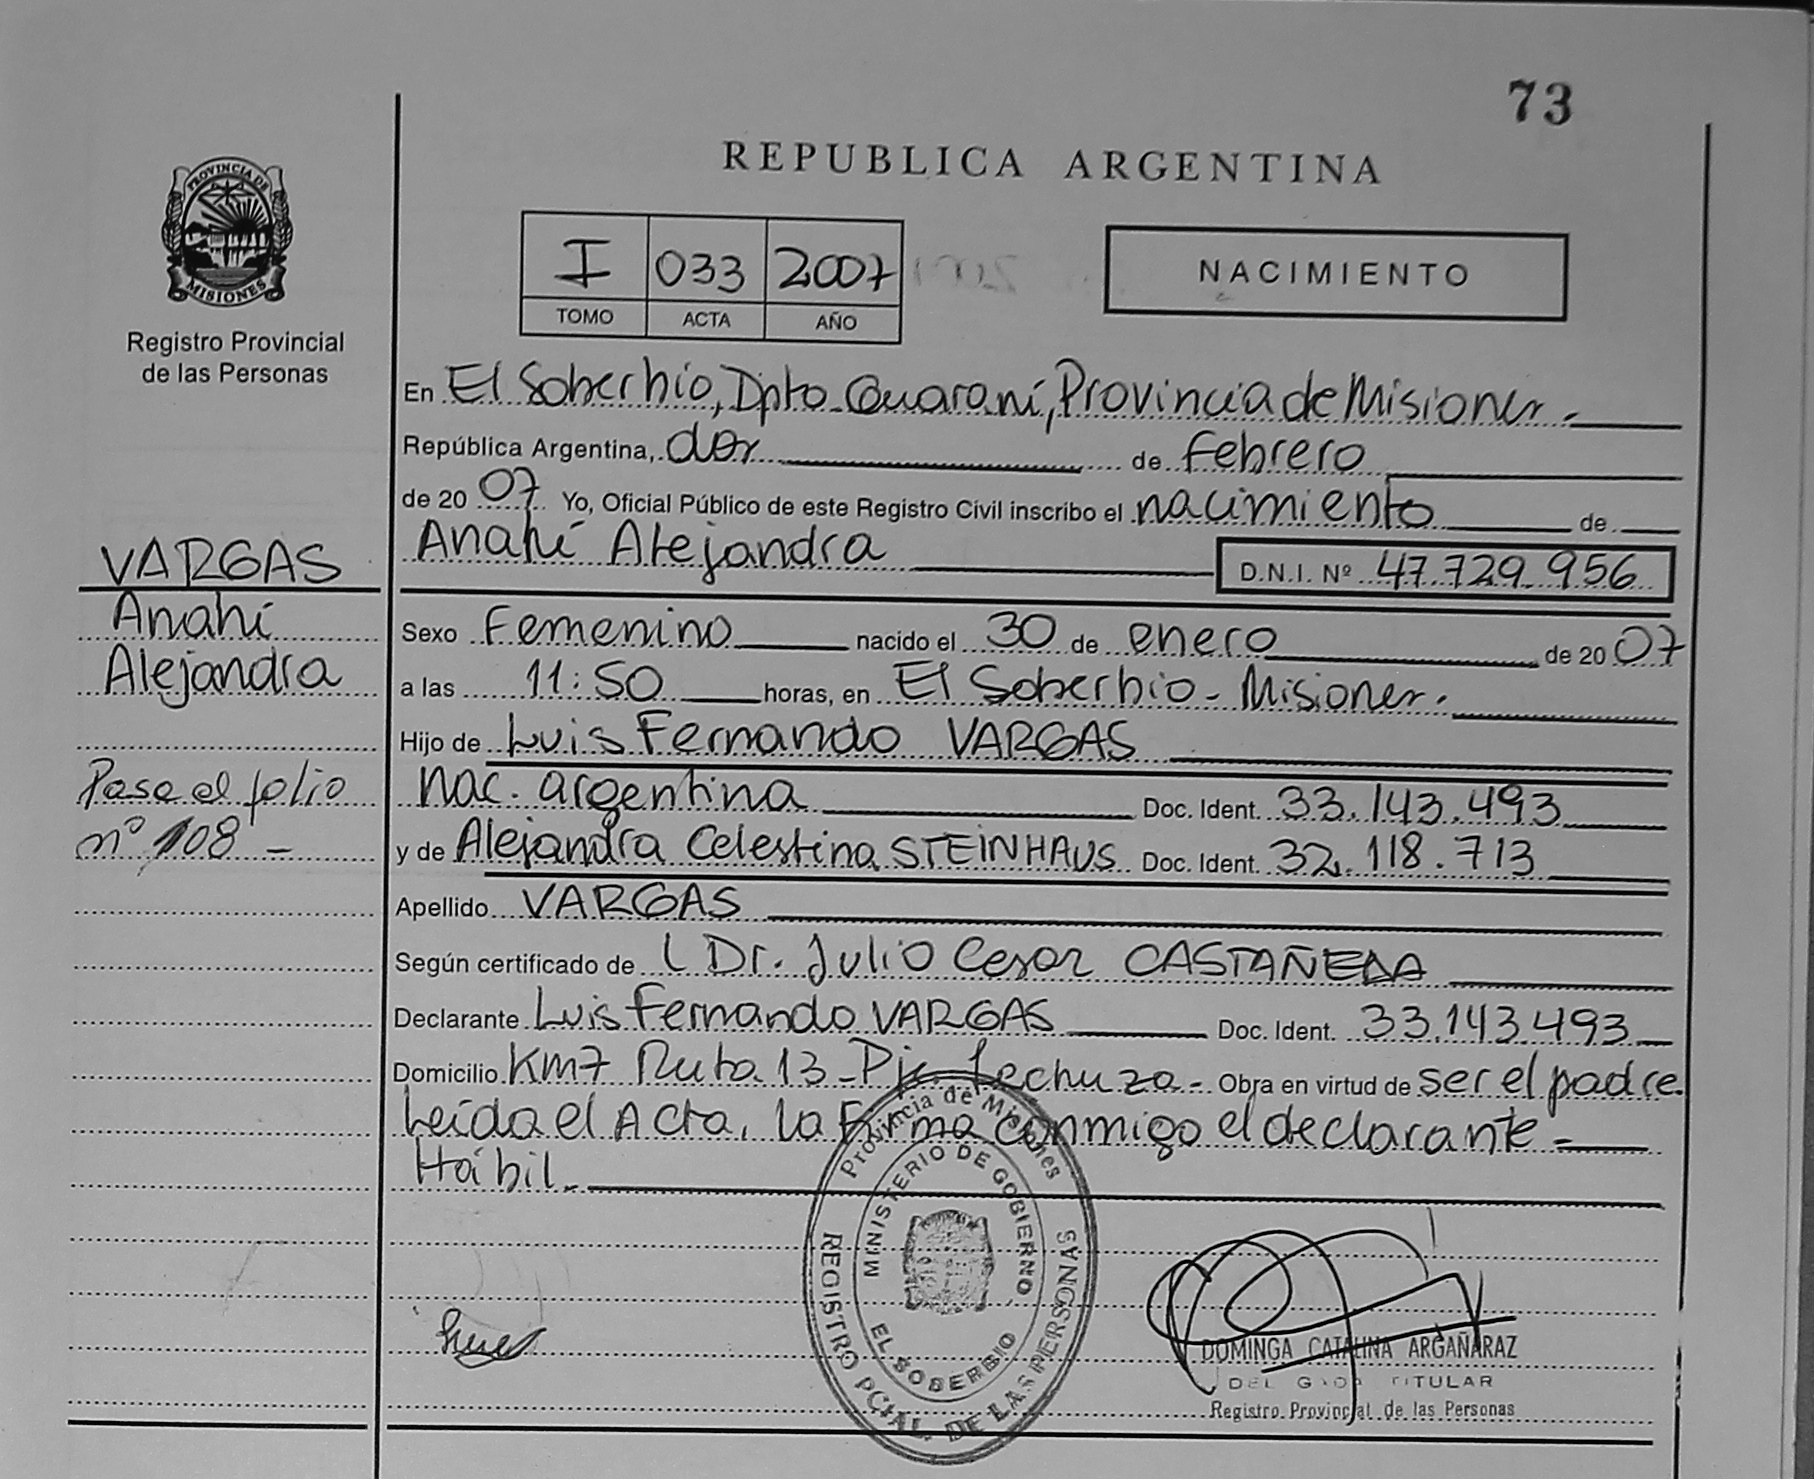 73
REPUBLICA ARGENTINA
PROVINCIA DE MISIONES
Registro Provincial
de las Personas
I 033 2007
TOMO ACTA AÑO
NACIMIENTO
En El Soberbio, Dpto. Guaraní, Provincia de Misiones.
República Argentina, dos de Febrero
de 2007 Yo, Oficial Público de este Registro Civil inscribo el nacimiento de
Anahí Alejandra D.N.I. Nº 47.729.956
VARGAS
Anahí
Alejandra
Sexo Femenino nacido el 30 de enero de 2007
a las 11:50 horas, en El Soberbio - Misiones.
Hijo de Luis Fernando VARGAS
nac. argentina Doc. Ident. 33.143.493
Pase al folio
nº 108 -
y de Alejandra Celestina STEINHAUS Doc. Ident. 32.118.713
Apellido VARGAS
Según certificado de l Dr. Julio Cesar CASTAÑEDA
Declarante Luis Fernando VARGAS Doc. Ident. 33.143.493
Domicilio Km7 Ruta 13 - Pje. Lechuza - Obra en virtud de ser el padre.
Leída el Acta, la Firma conmigo el declarante -
Hábil.
Provincia de Misiones
MINISTERIO DE GOBIERNO
EL SOBERBIO
REGISTRO PCIAL. DE LAS PERSONAS
DOMINGA CATALINA ARGAÑARAZ
TITULAR
Registro Provincial de las Personas